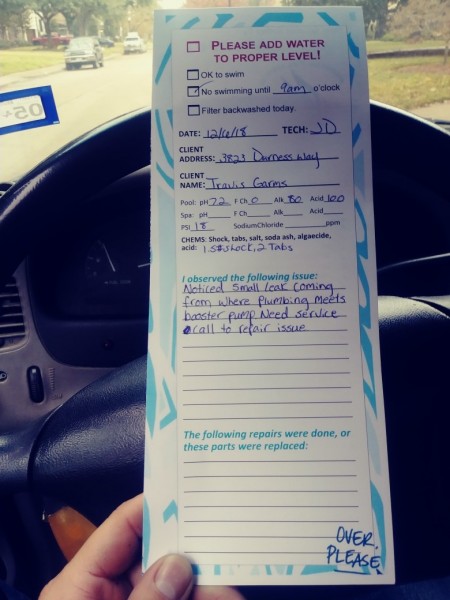 PLEASE ADD WATER
TO PROPER LEVEL!
OK to swim
No swimming until 9am o'clock
Filter backwashed today.
DATE: 12/6/18 TECH: JD
CLIENT
ADDRESS: 3823 Durness Way
CLIENT
NAME: Travis Garms
Pool: pH 7.2 F Ch 0 Alk 80 Acid 100
Spa: pH F Ch Alk Acid
PSI 18 SodiumChloride ppm
CHEMS: Shock, tabs, salt, soda ash, algaecide,
acid: 1.5# shock, 2 Tabs
I observed the following issue:
Noticed small leak coming
from where plumbing meets
booster pump. Need service
call to repair issue
The following repairs were done, or
these parts were replaced:
OVER,
PLEASE
05